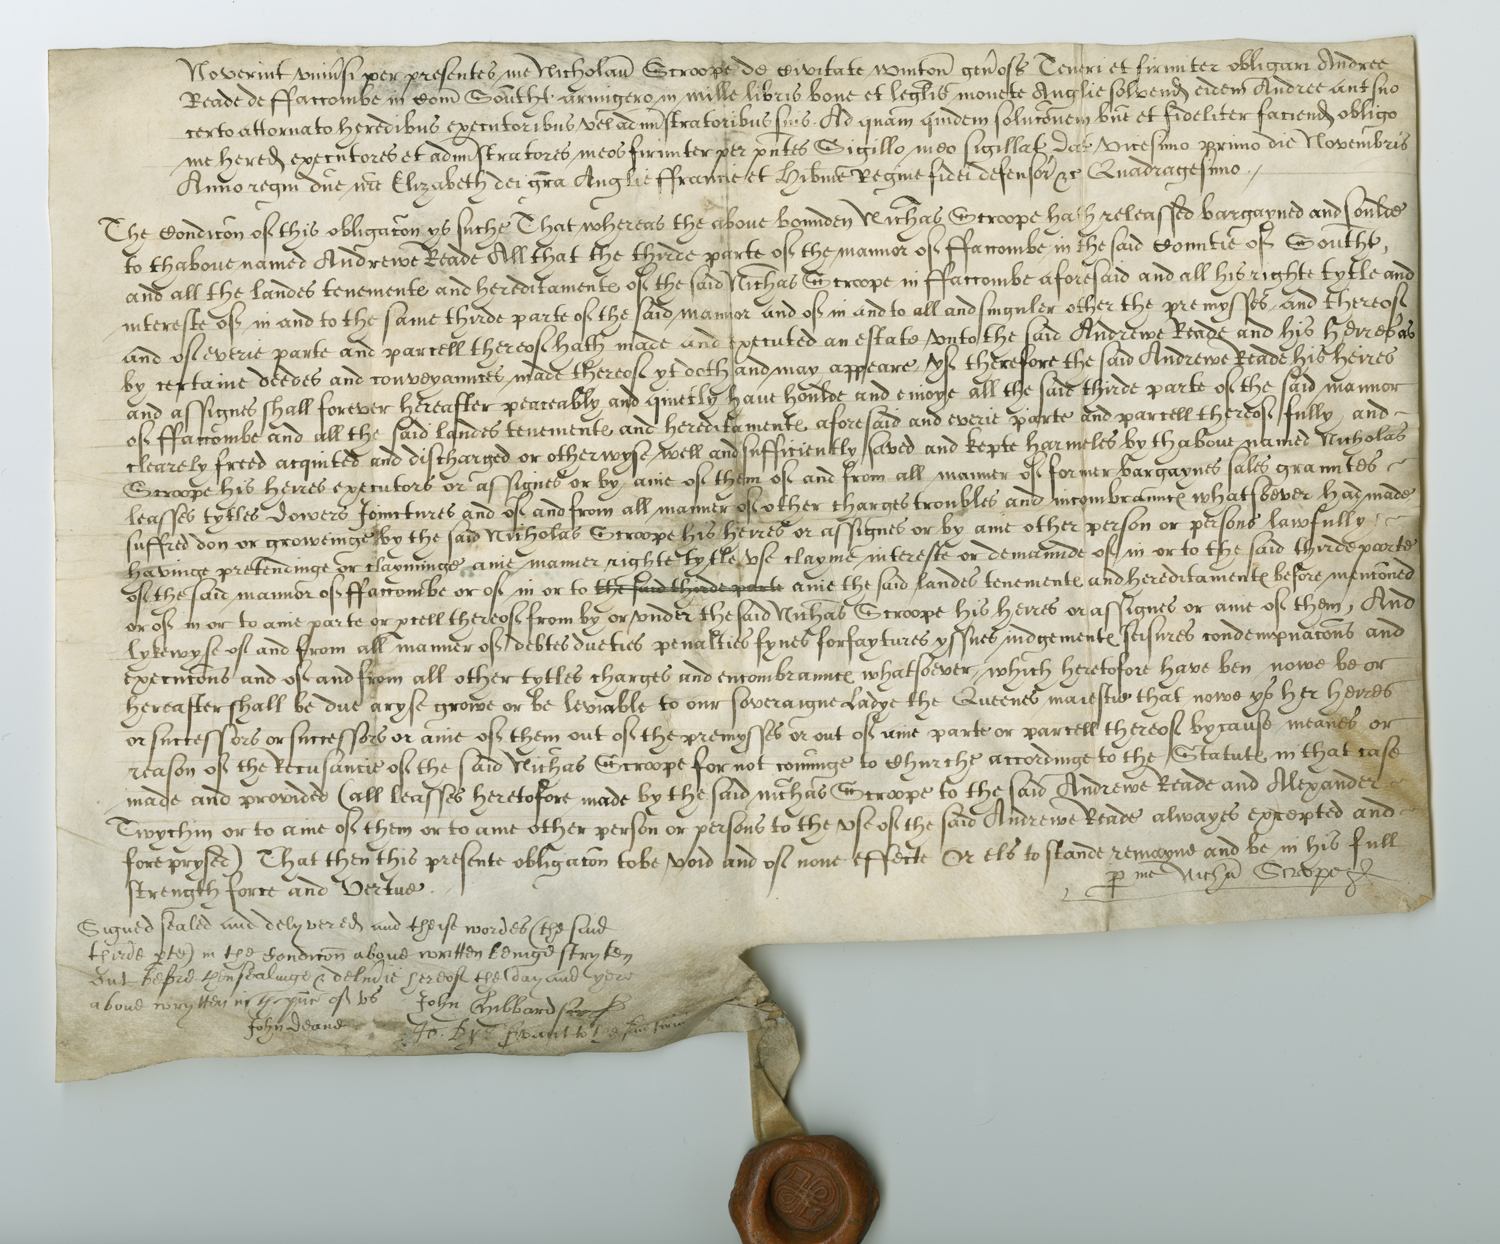 Noverint univsi per presentes me Nicholau Scroope de Civitate Winton genosu Teneri et firmiter obligari Andree
Reade de ffaccombe in Com Southt armigero in mille libris bone et leglis monete Anglie solvend eidem Andree aut suo
certo attornato heredibus executoribus vel administratoribus suis. Ad quam quidem solucionem bne et fideliter faciend obligo
me hered executores et administratores meos firmiter per pntes Sigillo meo sigillat dat Vicesimo primo die Novembris
Anno regni dne nre Elizabeth dei gra Anglie ffrancie et Hibnie Regine fidei defensor &c Quadragesimo
The Condicon of this obligacon ys suche That whereas the above bounden Nichas Scroope hath releassed bargayned and soulde
to thabove named Andrewe Reade All that the thirde parte of the mannor of ffaccombe in the said Countie of Southt,
and all the landes tenementes and hereditamentes of the said Nichas Scroope in ffaccombe aforesaid and all his righte tytle and
intereste of in and to the same thirde parte of the said mannor and of in and to all and singuler other the premysses and thereof
and of everie parte and parcell thereof hath made and executed an estate unto the said Andrewe Reade and his heires as
by certaine deedes and conveyannces made thereof yt doth and may appeare Yf therefore the said Andrewe Reade his heires
and assignes shall forever hereafter peaceably and quietly have houlde and enioye all the said thirde parte of the said mannor
of ffaccombe and all the said landes tenementes and hereditamentes aforesaid and everie parte and parcell thereof fully and
clearely freed acquited and discharged or otherwyse well and sufficiently saved and kepte harmeles by thabove named Nicholas
Scroope his heires executors or assignes or by anie of them of and from all manner of former bargaynes sales grauntes
leasses tytles Dowers Joinctures and of and from all manner of other charges troubles and incombrannces whatsoever had made
suffred don or groweinge by the said Nicholas Scroope his heires or assignes or by anie other person or persons lawfully
havinge pretendinge or clayminge anie manner righte tytle use clayme intereste or demaunde of in or to the said thirde parte
of the said mannor of ffaccombe or of in or to the said thirde parte anie the said landes tenementes and hereditamentes before mencioned
or of in or to anie parte or pcell thereof from by or under the said Nichas Scroope his heires or assignes or anie of them, And
lykewyse of and from all manner of debtes dueties penalties fynes forfaytures yssues iudgementes seisures condempnacons and
execucons and of and from all other tytles charges and encombrannces whatsoever which heretofore have ben nowe be or
hereafter shall be due aryse growe or be leviable to our soveraigne Ladye the Queenes maiestie that nowe ys her heires
or successors or successors or anie of them out of the premysses or out of anie parte or parcell thereof by cause meanes or
reason of the Recusancie of the said Nichas Scroope for not cominge to Churche accordinge to the Statute in that case
made and provided (all leasses heretofore made by the said nichas Scroope to the said Andrewe Reade and Alexander
Twychin or to anie of them or to anie other person or persons to the use of the said Andrewe Reade alwayes excepted and
foreprysed) That then this presente obligacon to be void and of none effecte Or els to stande remayne and be in his full
strength force and Vertue.
p me Nichu Scroope
Signed sealed and delyvered and theise wordes (the said
thirde pte) in the Condicon above written beinge stryken
out before thensealinge & delivie hereof the day and yere
above wrytten in the psnce of us John Hibbard scr
John Deane
Jo. servant to the